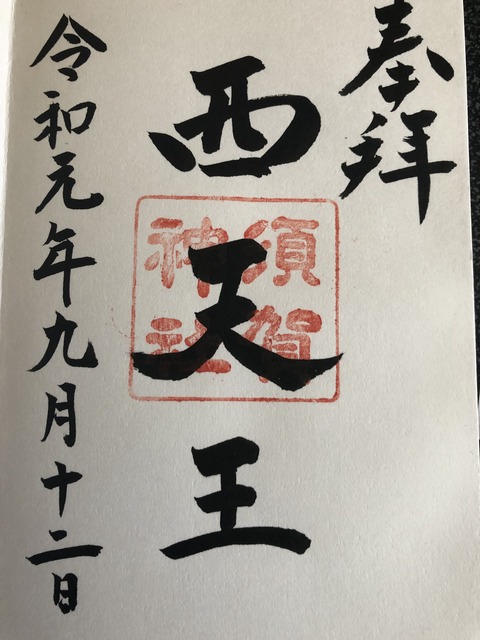 奉拝
西天王
須賀
神社
令和元年九月十二日